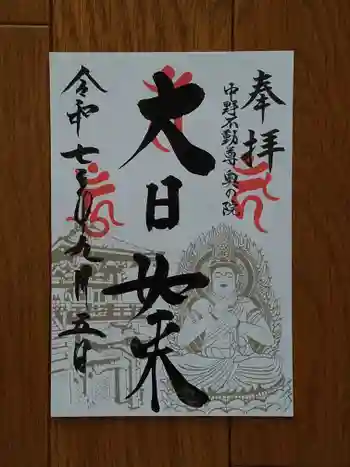 奉拝
中野不動尊奥の院
大日如来
令和七年九月五日